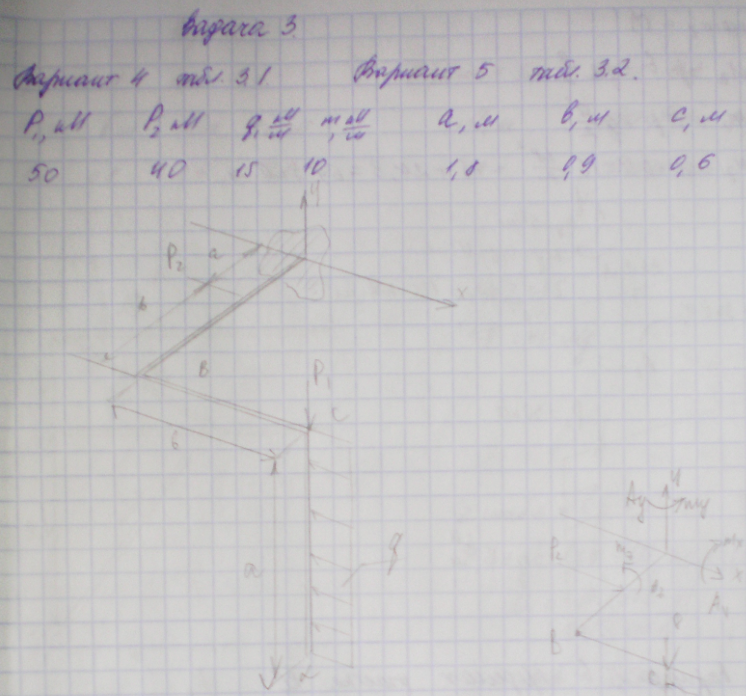 Задача 3.
Вариант 4 табл. 3.1. Вариант 5 табл. 3.2.
P₁, кН P₂ кН q, кН/м m, кН/м a, м b, м c, м
50 40 15 10 1,8 0,9 0,6
y
P₂ a
x
b
B
P₁
C
b
a
q
y
Ay my
mz
mx
P₂
x
B
C